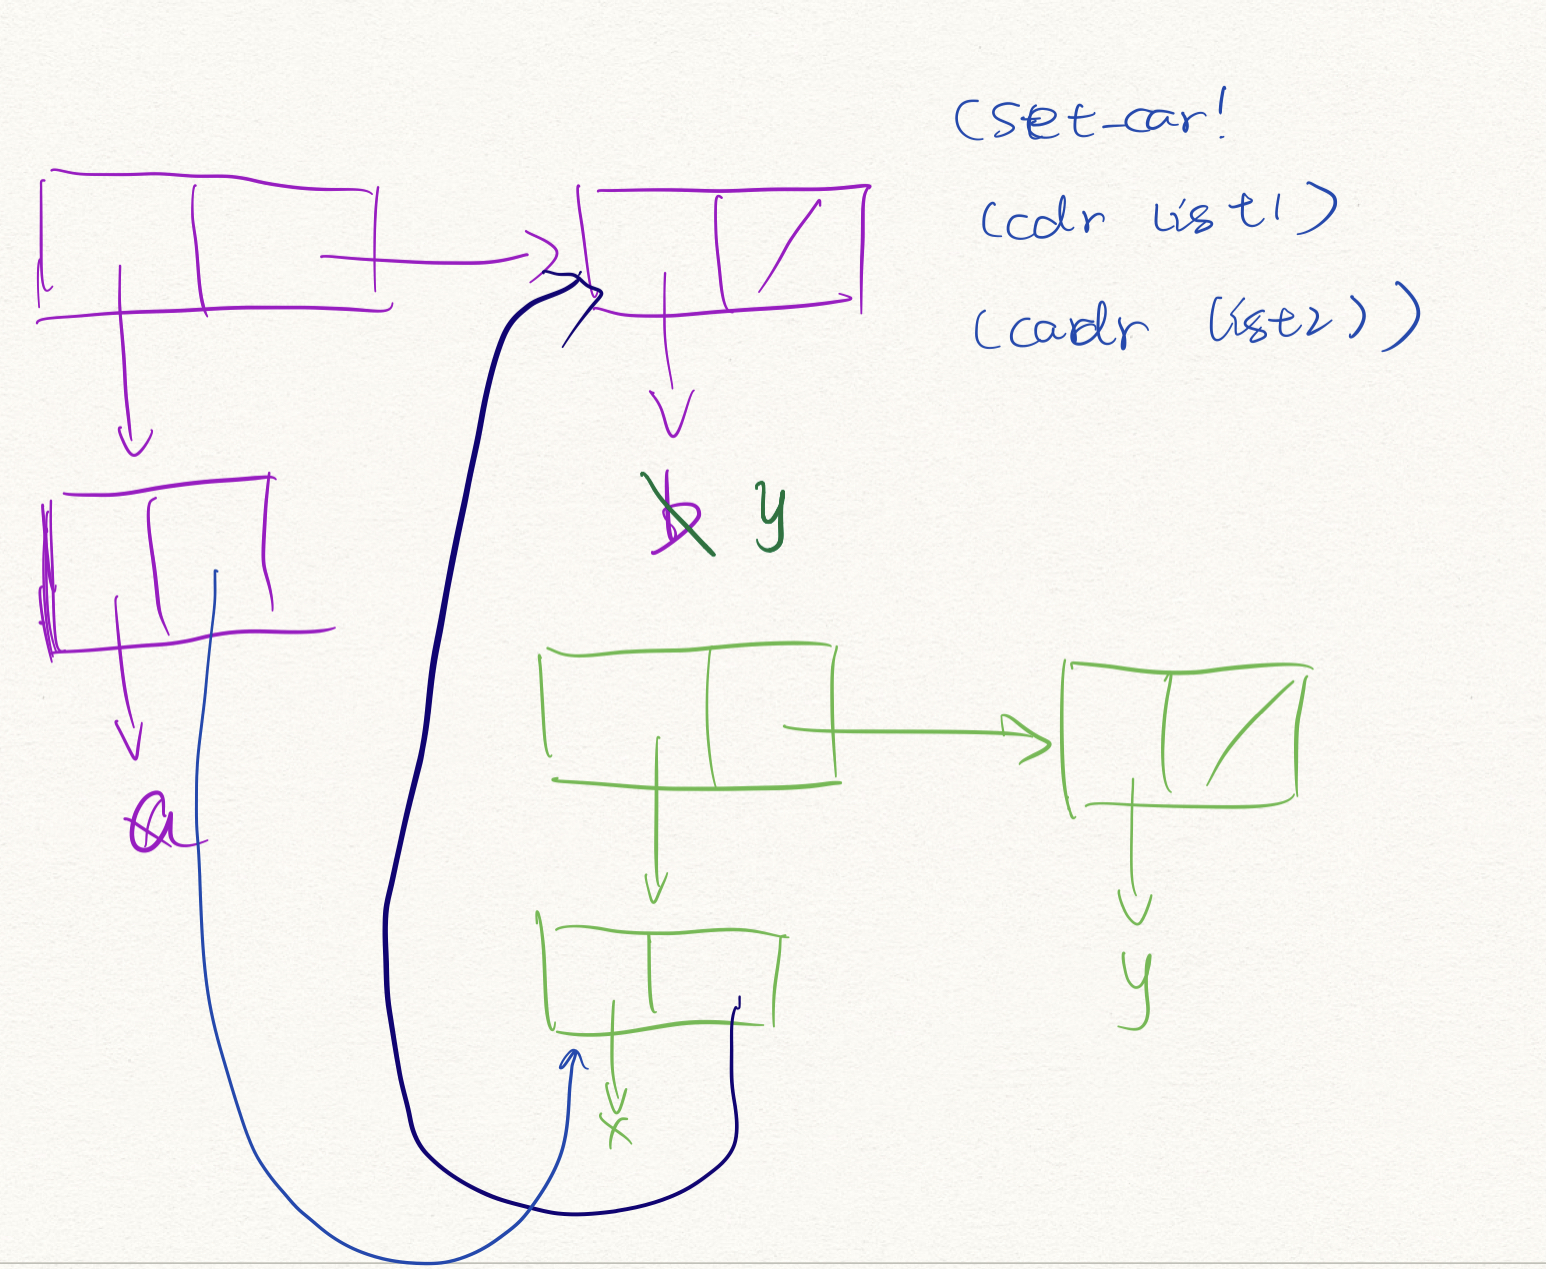 (set-car!
(cdr list1)
(cadr list2))
b y
a
y
x